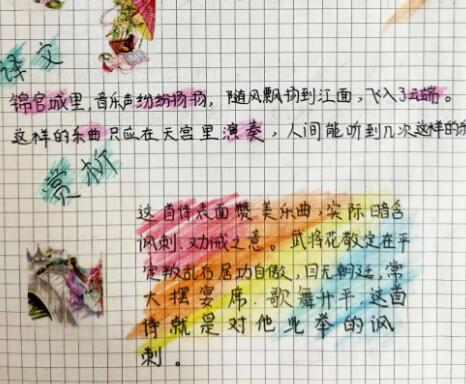 译文
锦官城里,音乐声纷纷扬扬,随风飘扬到江面,飞入了云端。
这样的乐曲只应在天宫里演奏,人间能听到几次这样的乐
赏析
这首诗表面赞美乐曲,实际暗含
讽刺、劝诫之意。武将花敬定在平
定叛乱后居功自傲,目无朝廷,常
大摆宴席、歌舞升平,这首
诗就是对他此举的讽
刺。